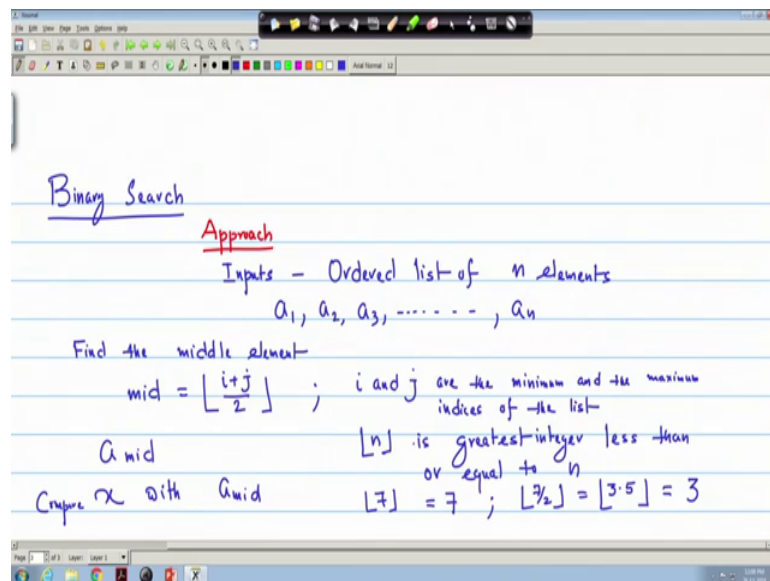 File Edit View Page Tools Options Help
Arial Normal 12
Binary Search
Approach
Inputs – Ordered list of n elements
a₁, a₂, a₃, ------- , aₙ
Find the middle element
mid = ⌊ i+j / 2 ⌋ ; i and j are the minimum and the maximum
indices of the list
a mid ⌊n⌋ is greatest integer less than
or equal to n
Compare x with amid ⌊7⌋ = 7 ; ⌊7/2⌋ = ⌊3.5⌋ = 3
Layer: Layer 1